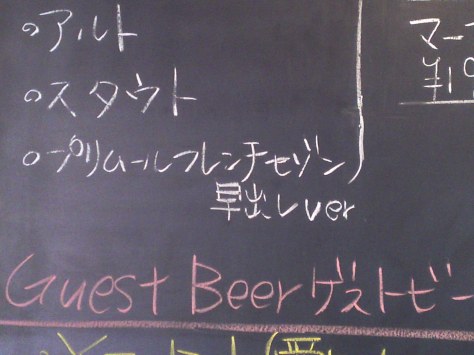 ○アルト
○スタウト
○プリムールフレンチセゾン
早出しver
マー
¥19
Guest Beer ゲストビー